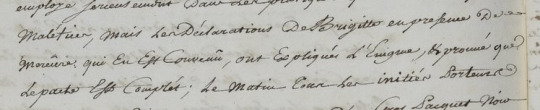 employé serieusement dans les
Maletier, mais les Déclarations de Brigitte en presence De
mercure, qui En Est Convenu, ont Expliqués L'Enigme, & prouvé que
le pacte Est Complet; le Matin tous les initiés sortent
Pacquet